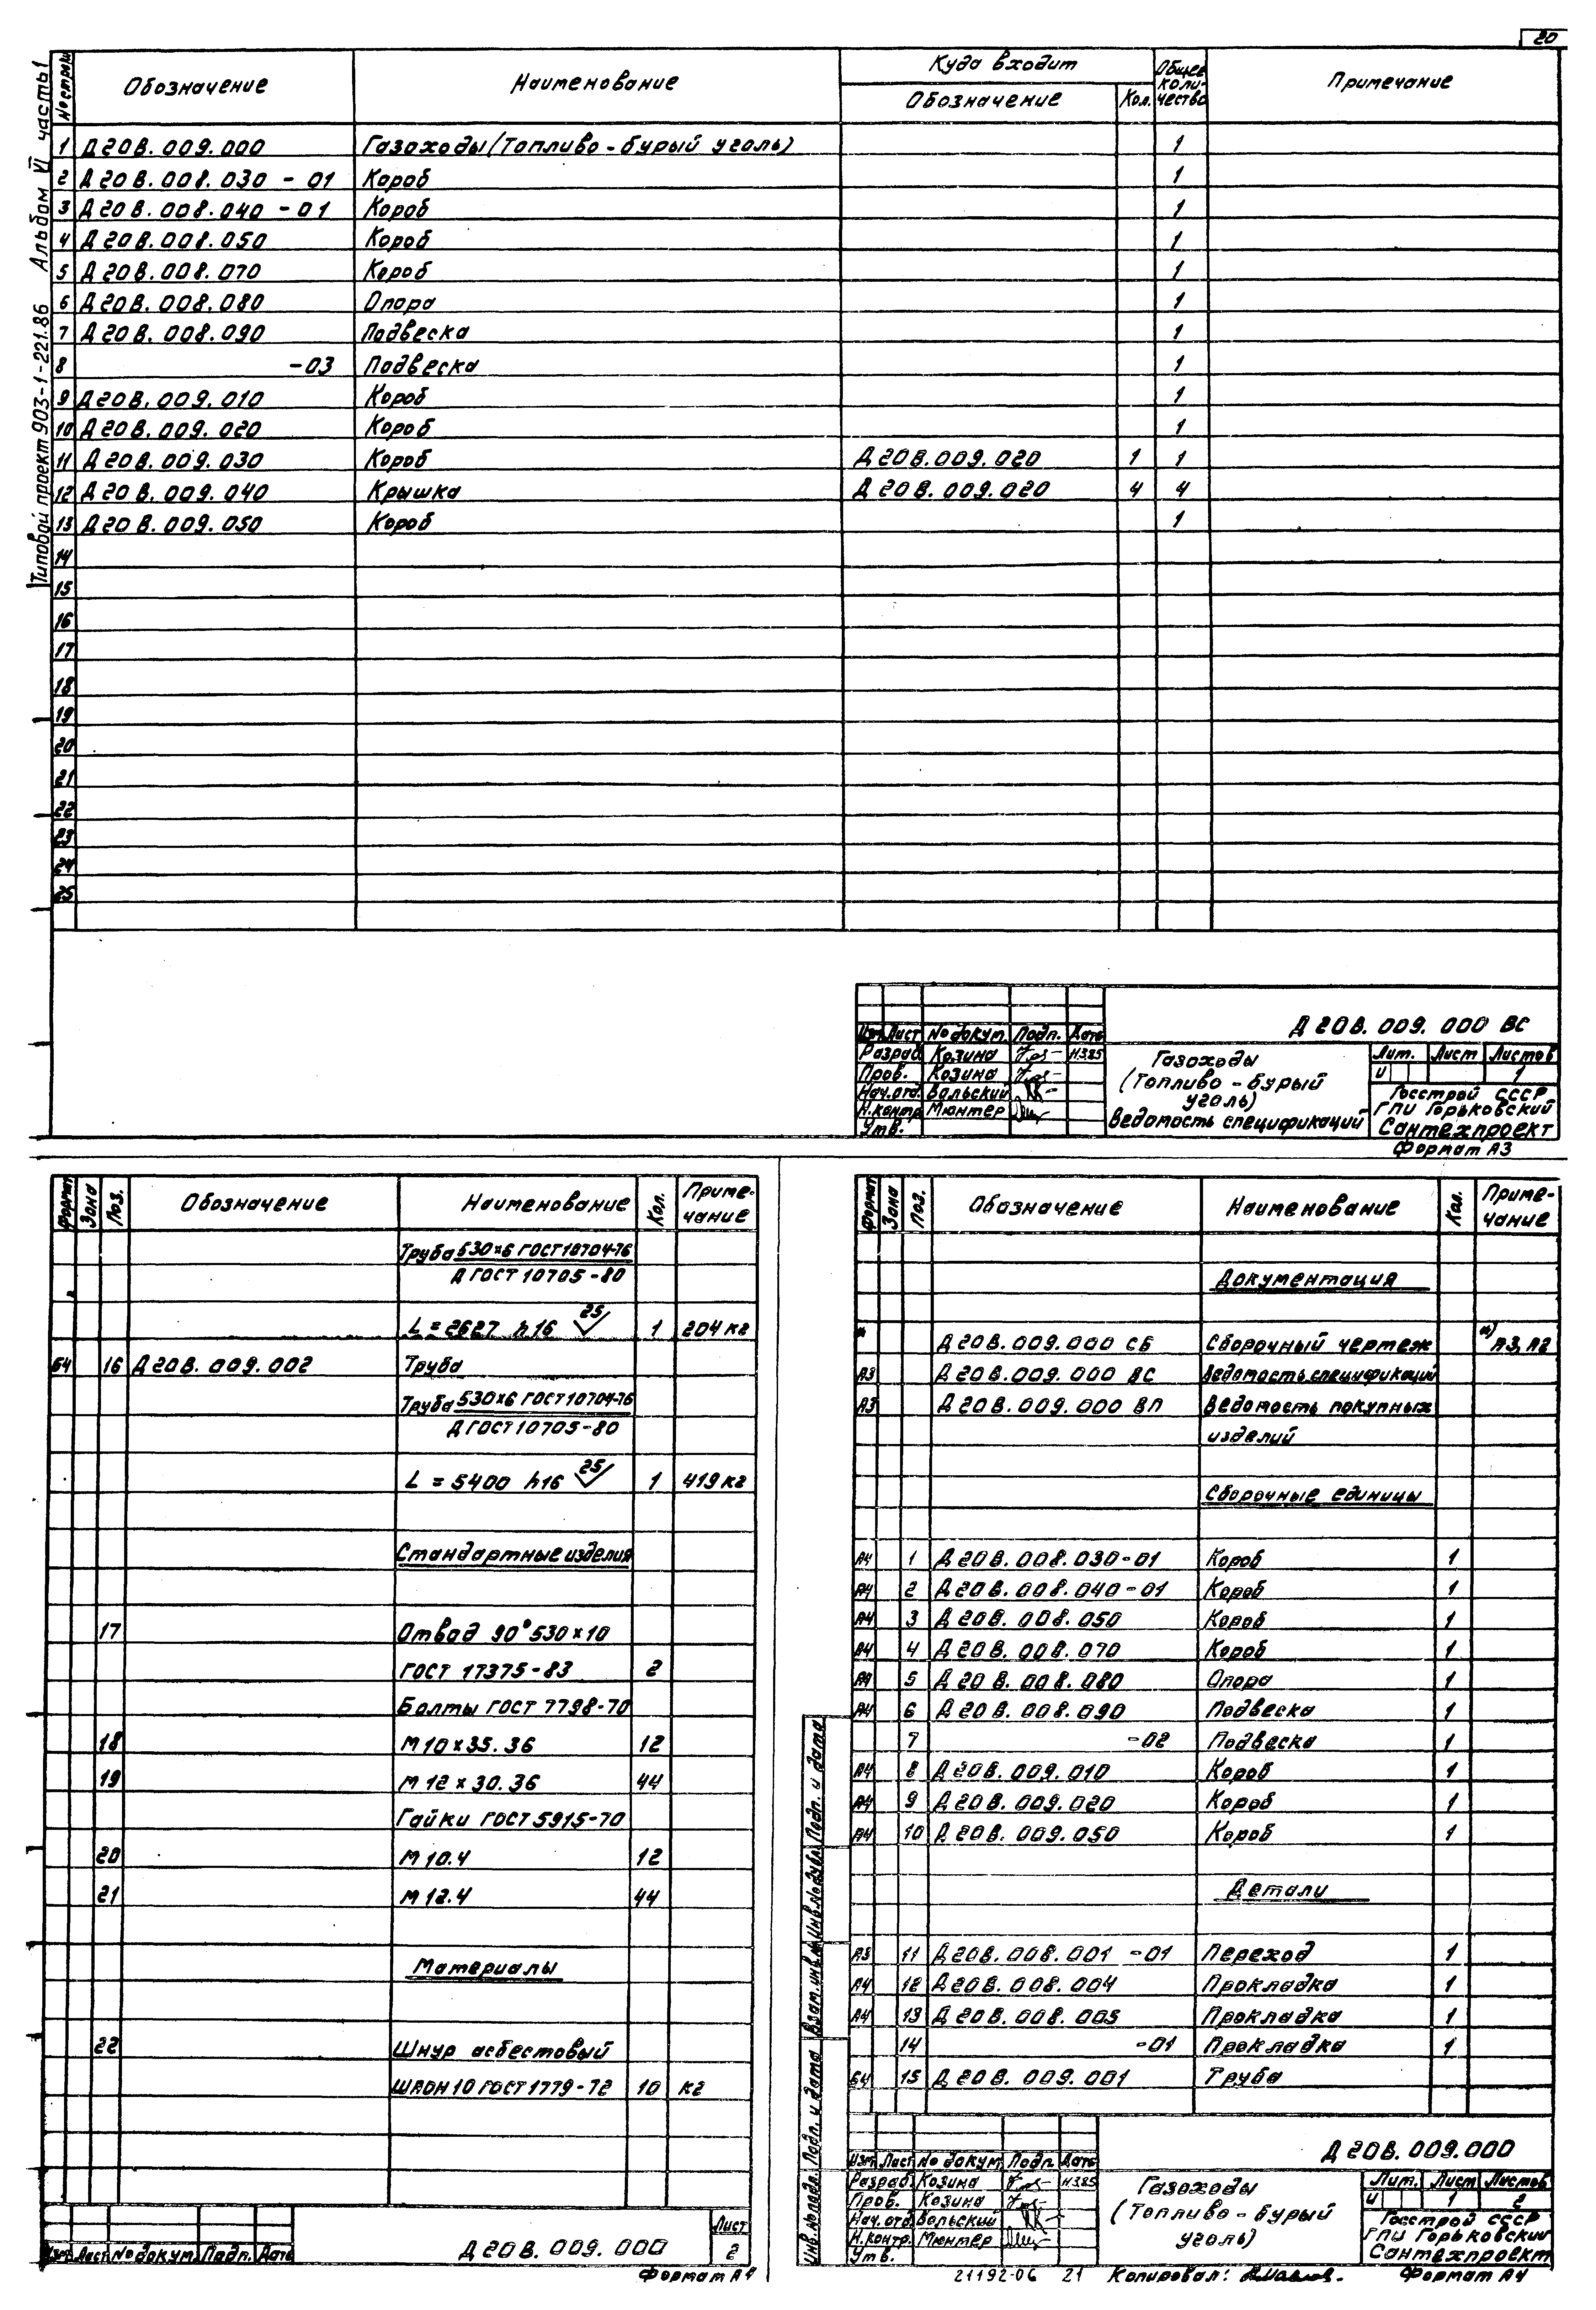 20
Типовой проект 903-1-221.86 Альбом VI часть 1
№ строки Обозначение Наименование Куда входит Общее количество Примечание
Обозначение Кол.
1 Д20В.009.000 Газоходы (Топливо - бурый уголь) 1
2 Д20В.008.030 - 01 Короб 1
3 Д20В.008.040 - 01 Короб 1
4 Д20В.008.050 Короб 1
5 Д20В.008.070 Короб 1
6 Д20В.008.080 Опора 1
7 Д20В.008.090 Подвеска 1
8 -03 Подвеска 1
9 Д20В.009.010 Короб 1
10 Д20В.009.020 Короб 1
11 Д20В.009.030 Короб Д20В.009.020 1 1
12 Д20В.009.040 Крышка Д20В.009.020 4 4
13 Д20В.009.050 Короб 1
14
15
16
17
18
19
20
21
22
23
24
25
Д20В.009.000 ВС
Изм Лист № докум. Подп. Дата
Разраб. Козина 11.85
Пров. Козина
Нач.отд. Вольский
Н.контр. Мюнтер
Утв.
Газоходы
(Топливо - бурый
уголь)
Ведомость спецификаций
Лит. Лист Листов
И 1
Госстрой СССР
ГПИ Горьковский
Сантехпроект
Формат А3
Формат Зона Поз. Обозначение Наименование Кол. Примечание
Труба 530×6 ГОСТ 10704-76
Д ГОСТ 10705-80
L = 2627 h16 25 1 204 кг
Б4 16 Д20В.009.002 Труба
Труба 530×6 ГОСТ 10704-76
Д ГОСТ 10705-80
L = 5400 h16 25 1 419 кг
Стандартные изделия
17 Отвод 90° 530×10
ГОСТ 17375-83 2
Болты ГОСТ 7798-70
18 М10×35.36 12
19 М12×30.36 44
Гайки ГОСТ 5915-70
20 М10.4 12
21 М12.4 44
Материалы
22 Шнур асбестовый
ШАОН 10 ГОСТ 1779-72 10 кг
Изм Лист № докум. Подп. Дата
Д20В.009.000
Лист
2
Формат А4
Формат Зона Поз. Обозначение Наименование Кол. Примечание
Документация
*) Д20В.009.000 СБ Сборочный чертеж *) А3, А2
А3 Д20В.009.000 ВС Ведомость спецификаций
А3 Д20В.009.000 ВП Ведомость покупных
изделий
Сборочные единицы
А4 1 Д20В.008.030-01 Короб 1
А4 2 Д20В.008.040-01 Короб 1
А4 3 Д20В.008.050 Короб 1
А4 4 Д20В.008.070 Короб 1
А4 5 Д20В.008.080 Опора 1
А4 6 Д20В.008.090 Подвеска 1
7 -02 Подвеска 1
А4 8 Д20В.009.010 Короб 1
А4 9 Д20В.009.020 Короб 1
А4 10 Д20В.009.050 Короб 1
Детали
А3 11 Д20В.008.001 -01 Переход 1
А4 12 Д20В.008.004 Прокладка 1
А4 13 Д20В.008.005 Прокладка 1
14 -01 Прокладка 1
Б4 15 Д20В.009.001 Труба
Инв.№ подл. Подп. и дата Взам.инв.№ Инв.№ дубл. Подп. и дата
Д20В.009.000
Изм Лист № докум. Подп. Дата
Разраб. Козина 11.85
Пров. Козина
Нач.отд. Вольский
Н.контр. Мюнтер
Утв.
Газоходы
(Топливо - бурый
уголь)
Лит. Лист Листов
И 1 2
Госстрой СССР
ГПИ Горьковский
Сантехпроект
21192-06 21 Копировал: Формат А4